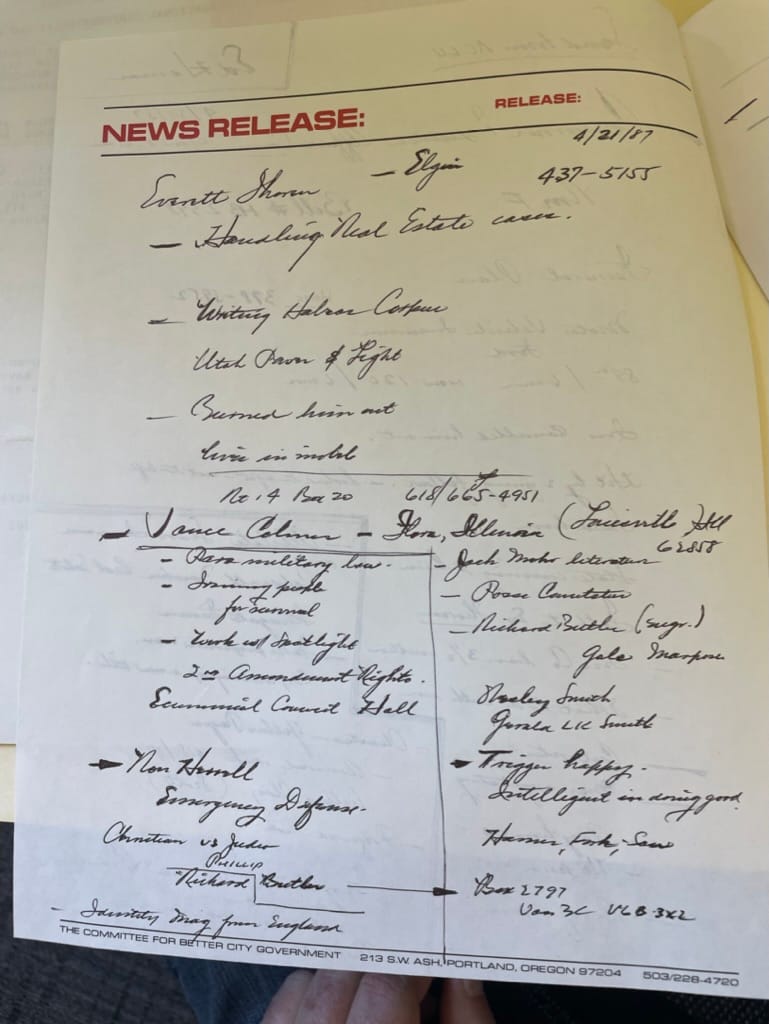 NEWS RELEASE:
RELEASE:
4/21/87
Everett Thoren — Elgin 437-5155
— Handling Real Estate cases.
— Writing
Utah Power & Light
— Burned him out
lives in mobil
Rt. 4 Box 20 618/665-4951
— Vance Colmer — Flora, Illinois (Louisville) Ill
62858
— Para military law.
— Training people
for survival
— Work w/ Spotlight
2nd Amendment Rights.
Ecumenical Council Hall
— Jack Mohr literature
— Posse Comitatus
— Richard Butler (supr.)
Gale
Wesley Smith
Gerald LK Smith
Trigger happy.
Intelligent in doing good.
Ron
Emergency Defense.
Christian vs
PHILLIP
"Richard Butler
— Identity Mag from England
Box 2797
Van BC V6B-3X2
THE COMMITTEE FOR BETTER CITY GOVERNMENT 213 S.W. ASH, PORTLAND, OREGON 97204 503/228-4720